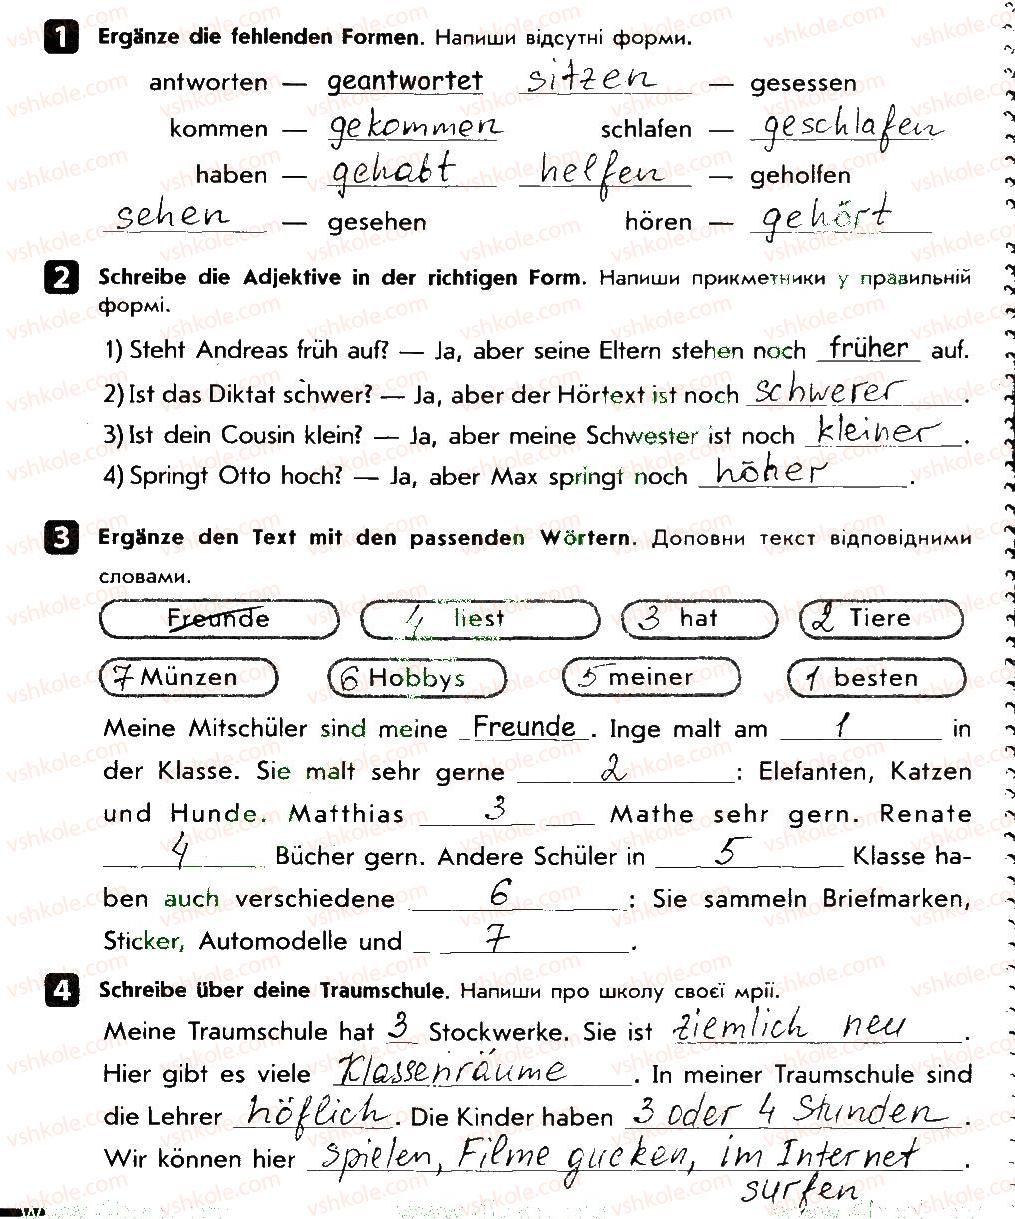 1 Ergänze die fehlenden Formen. Напиши відсутні форми.
antworten — geantwortet sitzen — gesessen
kommen — gekommen schlafen — geschlafen
haben — gehabt helfen — geholfen
sehen — gesehen hören — gehört
2 Schreibe die Adjektive in der richtigen Form. Напиши прикметники у правильній
формі.
1) Steht Andreas früh auf? — Ja, aber seine Eltern stehen noch früher auf.
2) Ist das Diktat schwer? — Ja, aber der Hörtext ist noch schwerer.
3) Ist dein Cousin klein? — Ja, aber meine Schwester ist noch kleiner.
4) Springt Otto hoch? — Ja, aber Max springt noch höher.
3 Ergänze den Text mit den passenden Wörtern. Доповни текст відповідними
словами.
Freunde 4 liest 3 hat 2 Tiere
7 Münzen 6 Hobbys 5 meiner 1 besten
Meine Mitschüler sind meine Freunde. Inge malt am 1 in
der Klasse. Sie malt sehr gerne 2 : Elefanten, Katzen
und Hunde. Matthias 3 Mathe sehr gern. Renate
4 Bücher gern. Andere Schüler in 5 Klasse ha-
ben auch verschiedene 6 : Sie sammeln Briefmarken,
Sticker, Automodelle und 7.
4 Schreibe über deine Traumschule. Напиши про школу своєї мрії.
Meine Traumschule hat 3 Stockwerke. Sie ist ziemlich neu.
Hier gibt es viele Klassenräume. In meiner Traumschule sind
die Lehrer höflich. Die Kinder haben 3 oder 4 Stunden.
Wir können hier spielen, Filme gucken, im Internet.
surfen